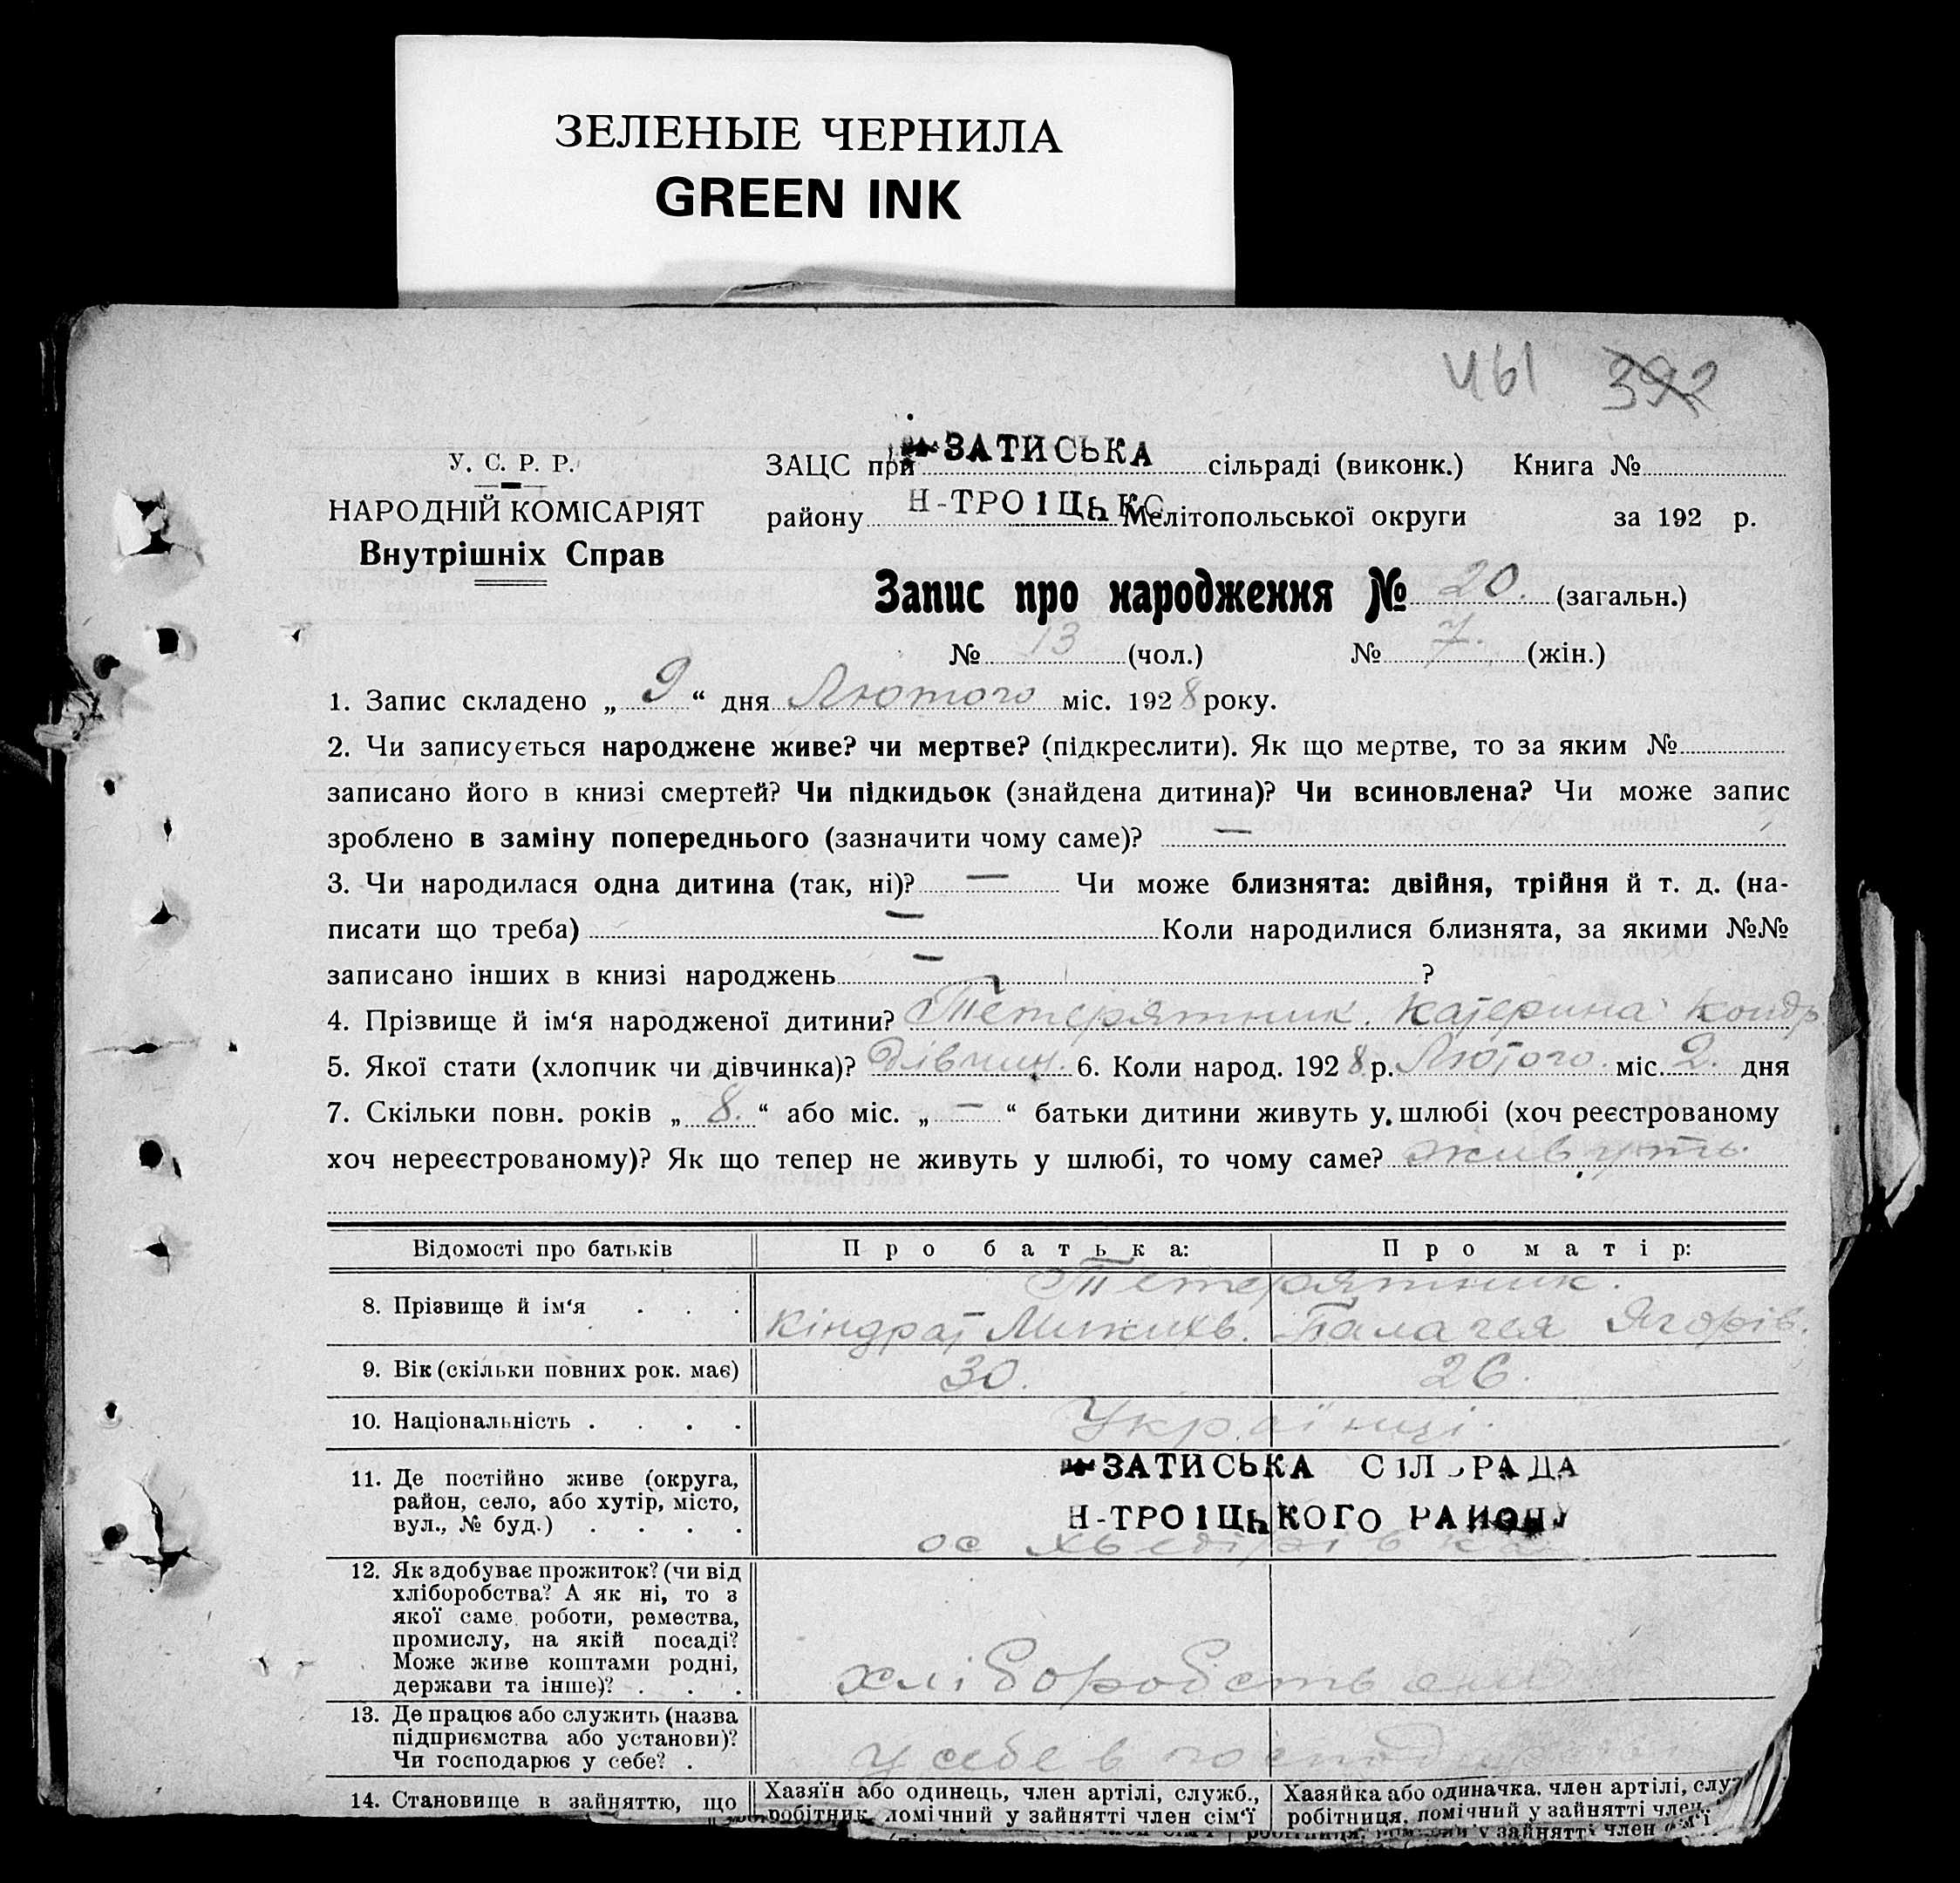 ЗЕЛЕНЫЕ ЧЕРНИЛА
GREEN INK
461 392
У. С. Р. Р.
НАРОДНІЙ КОМІСАРІЯТ
Внутрішніх Справ
ЗАЦС при ЗАТИСЬКА сільраді (виконк.) Книга №
району Н-ТРОІЦЬКО Мелітопольської округи за 192 р.
Запис про народження № 20. (загальн.)
№ 13 (чол.) № 7. (жін.)
1. Запис складено „ 9 “ дня Лютого міс. 1928 року.
2. Чи записується народжене живе? чи мертве? (підкреслити). Як що мертве, то за яким №
записано його в книзі смертей? Чи підкидьок (знайдена дитина)? Чи всиновлена? Чи може запис
зроблено в заміну попереднього (зазначити чому саме)? —
3. Чи народилася одна дитина (так, ні)? — Чи може близнята: двійня, трійня й т. д. (на-
писати що треба) — Коли народилися близнята, за якими №№
записано інших в книзі народжень — ?
4. Прізвище й ім‘я народженої дитини? Тетерятник. Катерина Кондр
5. Якої стати (хлопчик чи дівчинка)? Дівчин. 6. Коли народ. 1928 р. Лютого. міс. 2. дня
7. Скільки повн. років „ 8. “ або міс. „ — “ батьки дитини живуть у шлюбі (хоч реєстрованому
хоч нереєстрованому)? Як що тепер не живуть у шлюбі, то чому саме? живуть.
Відомості про батьків Про батька: Про матір:
Тетерятник.
8. Прізвище й ім‘я . . . Кіндрат Палагея Ягорів.
9. Вік (скільки повних рок. має) 30. 26.
10. Національність . . . . Українці.
11. Де постійно живе (округа,
район, село, або хутір, місто,
вул., № буд.) . . . .
ЗАТИСЬКА СІЛЬРАДА
Н-ТРОІЦЬКОГО РАЙОНУ
ос Хведірівка
12. Як здобуває прожиток? (чи від
хліборобства? А як ні, то з
якої саме роботи, ремества,
промислу, на якій посаді?
Може живе коштами родні,
держави та інше)? . . .
хліборобством
13. Де працює або служить (назва
підприємства або установи)?
Чи господарює у себе? .
у себе в
14. Становище в зайняттю, що
Хазяїн або одинець, член артілі, служб.,
робітник, помічний у зайнятті член сім‘ї
Хазяйка або одиначка, член артілі, служ
робітниця, помічний у зайнятті член
у зайнятті член сім‘ї